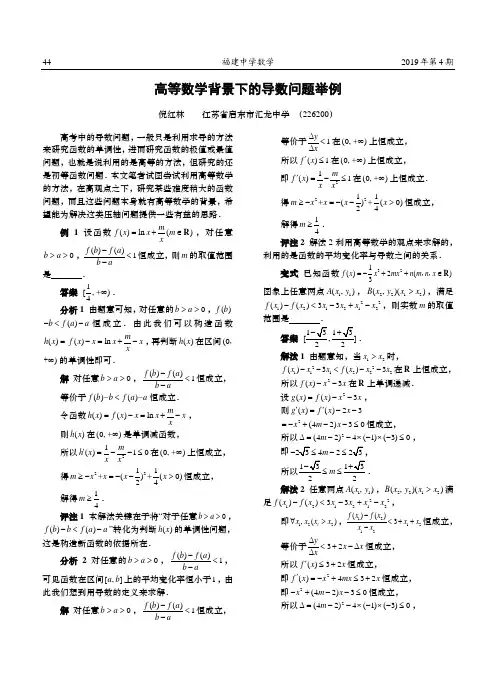 44 福建中学数学 2019 年第 4 期
高等数学背景下的导数问题举例
倪红林 江苏省启东市汇龙中学 (226200)
高考中的导数问题,一般只是利用求导的方法
来研究函数的单调性,进而研究函数的极值或最值
问题,也就是说利用的是高等的方法,但研究的还
是初等函数问题.本文笔者试图尝试利用高等数学
的方法,在高观点之下,研究某些难度稍大的函数
问题,而且这些问题本身就有高等数学的背景,希
望能为解决这类压轴问题提供一些有益的思路.
例 1 设函数 f(x) = ln x + m/x (m∈R),对任意
b > a > 0,(f(b) − f(a))/(b − a) < 1 恒成立,则 m 的取值范围
是 .
答案 [1/4, +∞).
分析 1 由题意可知,对任意的 b > a > 0,f(b)
−b < f(a) − a 恒成立.由此我们可以构造函数
h(x) = f(x) − x = ln x + m/x − x,再判断 h(x) 在区间 (0,
+∞) 的单调性即可.
解 对任意 b > a > 0,(f(b) − f(a))/(b − a) < 1 恒成立,
等价于 f(b) − b < f(a) − a 恒成立.
令函数 h(x) = f(x) − x = ln x + m/x − x,
则 h(x) 在 (0, +∞) 是单调减函数,
所以 h′(x) = 1/x − m/x² − 1 ≤ 0 在 (0, +∞) 上恒成立,
得 m ≥ −x² + x = −(x − 1/2)² + 1/4 (x > 0) 恒成立,
解得 m ≥ 1/4.
评注 1 本解法关键在于将“对于任意 b > a > 0,
f(b) − b < f(a) − a”转化为判断 h(x) 的单调性问题,
这是构造新函数的依据所在.
分析 2 对任意的 b > a > 0,(f(b) − f(a))/(b − a) < 1,
可见函数在区间 [a, b] 上的平均变化率恒小于 1,由
此我们想到用导数的定义来求解.
解 对任意 b > a > 0,(f(b) − f(a))/(b − a) < 1 恒成立,
等价于 Δy/Δx < 1 在 (0, +∞) 上恒成立,
所以 f′(x) ≤ 1 在 (0, +∞) 上恒成立,
即 f′(x) = 1/x − m/x² ≤ 1 在 (0, +∞) 上恒成立.
得 m ≥ −x² + x = −(x − 1/2)² + 1/4 (x > 0) 恒成立,
解得 m ≥ 1/4.
评注 2 解法 2 利用高等数学的观点来求解的,
利用的是函数的平均变化率与导数之间的关系.
变式 已知函数 f(x) = −1/3 x³ + 2mx² + n(m,n,x∈R)
图象上任意两点 A(x₁, y₁),B(x₂, y₂)(x₁ > x₂),满足
f(x₁) − f(x₂) < 3x₁ − 3x₂ + x₁² − x₂²,则实数 m 的取值
范围是 .
答案 [(1−√3)/2, (1+√3)/2].
解法 1 由题意知,当 x₁ > x₂ 时,
f(x₁) − x₁² − 3x₁ < f(x₂) − x₂² − 3x₂ 在 R 上恒成立,
所以 f(x) − x² − 3x 在 R 上单调递减.
设 g(x) = f(x) − x² − 3x,
则 g′(x) = f′(x) − 2x − 3
= −x² + (4m − 2)x − 3 ≤ 0 恒成立,
所以 Δ = (4m − 2)² − 4×(−1)×(−3) ≤ 0,
即 −2√3 ≤ 4m − 2 ≤ 2√3,
所以 (1−√3)/2 ≤ m ≤ (1+√3)/2.
解法 2 任意两点 A(x₁, y₁),B(x₂, y₂)(x₁ > x₂) 满
足 f(x₁) − f(x₂) < 3x₁ − 3x₂ + x₁² − x₂²,
即 ∀x₁, x₂(x₁ > x₂),(f(x₁) − f(x₂))/(x₁ − x₂) < 3 + x₁ + x₂ 恒成立,
等价于 Δy/Δx < 3 + 2x − Δx 恒成立,
所以 f′(x) ≤ 3 + 2x 恒成立,
即 f′(x) = −x² + 4mx ≤ 3 + 2x 恒成立,
即 −x² + (4m − 2)x − 3 ≤ 0 恒成立,
所以 Δ = (4m − 2)² − 4×(−1)×(−3) ≤ 0,